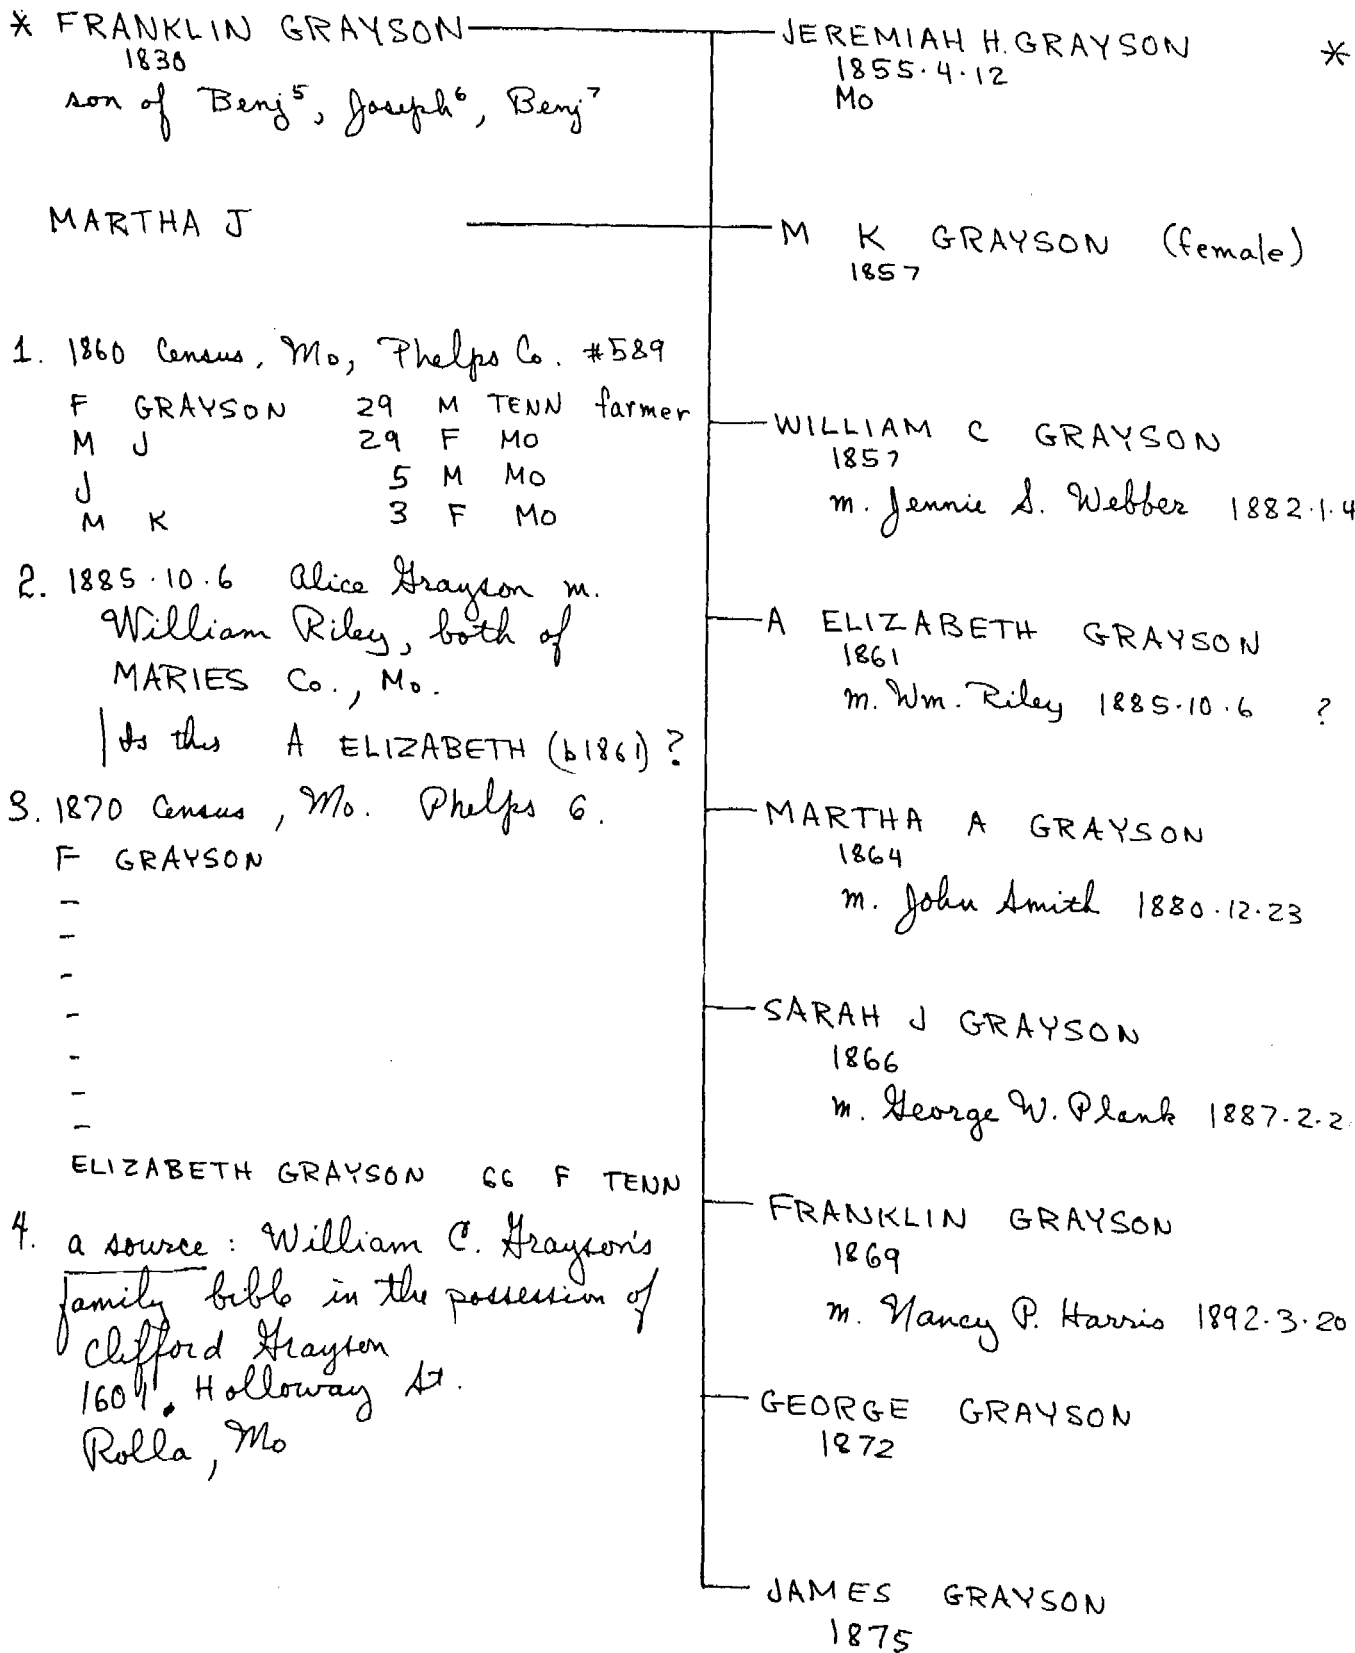 * FRANKLIN GRAYSON
1830
son of Benj⁵, Joseph⁶, Benj⁷
MARTHA J
1. 1860 Census, Mo, Phelps Co. #589
F GRAYSON 29 M TENN farmer
M J 29 F MO
J 5 M MO
M K 3 F MO
2. 1885.10.6 Alice Grayson m.
William Riley, both of
MARIES Co., Mo.
Is this A ELIZABETH (b1861)?
3. 1870 Census, Mo. Phelps Co.
F GRAYSON
-
-
-
-
-
-
-
ELIZABETH GRAYSON 66 F TENN
4. a source: William C. Grayson's
family bible in the possession of
Clifford Grayson
Holloway St.
Rolla, Mo
JEREMIAH H. GRAYSON *
1855.4.12
Mo
M K GRAYSON (female)
1857
WILLIAM C GRAYSON
m. Jennie S. Webber 1882.1.4
A ELIZABETH GRAYSON
1861
m. Wm. Riley 1885.10.6 ?
MARTHA A GRAYSON
1864
m. John Smith 1880.12.23
SARAH J GRAYSON
1866
m. George W. Plank 1887.2.2
FRANKLIN GRAYSON
1869
m. Nancy P. Harris 1892.3.20
GEORGE GRAYSON
1872
JAMES GRAYSON
1875